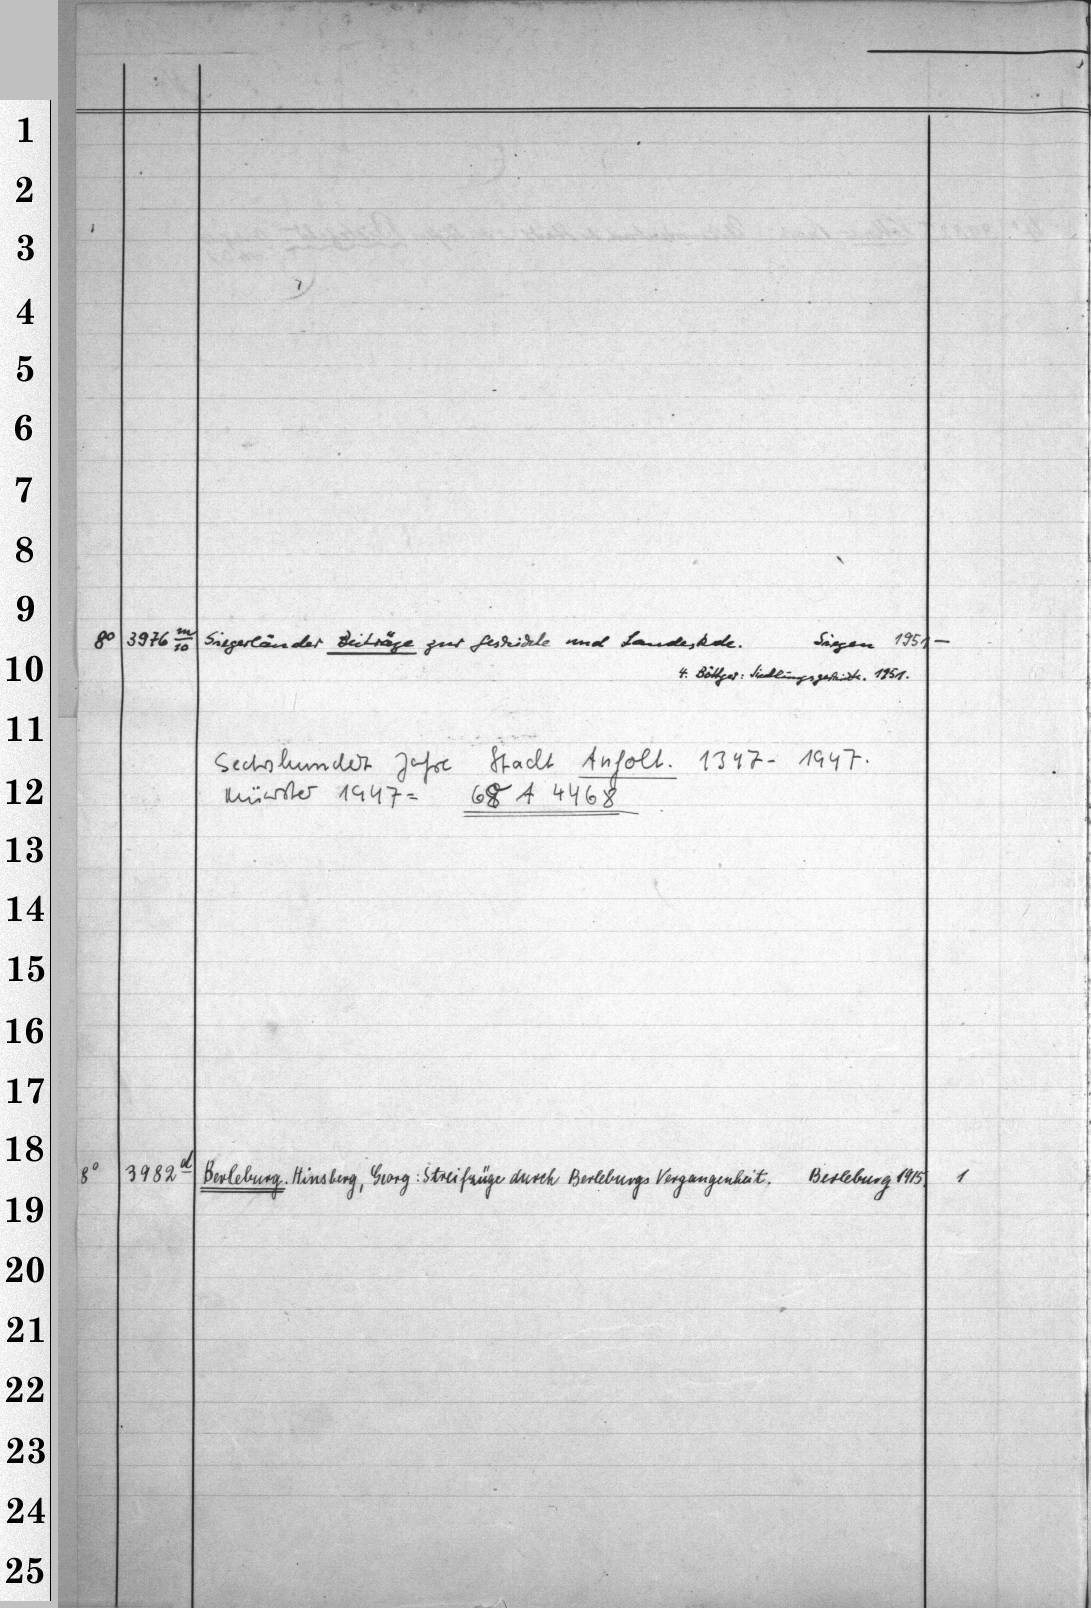 1
2
3
4
5
6
7
8
9
8° 3976 m/10 Siegerländer Beiträge zur Geschichte und Landeskde. Siegen 1951 —
10
4. Böttger: Siedlungsgeschichte. 1951.
11
Sechshundert Jahre Stadt Anholt. 1347- 1947.
12
Münster 1947= 68 A 4468
13
14
15
16
17
18
8° 3982 d Berleburg. Hinsberg, Georg: Streifzüge durch Berleburgs Vergangenheit. Berleburg 1915. 1
19
20
21
22
23
24
25